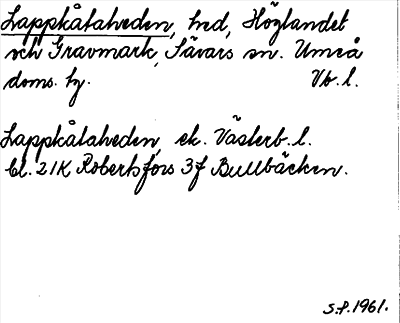 Lappkåtaheden, hed, Höglandet
och Gravmark, Sävars sn. Umeå
doms. hg. Vb. l.
Lappkåtaheden, ek. Västerb. l.
bl. 21K Robertsfors 3f Bullbäcken.
S.P. 1961.